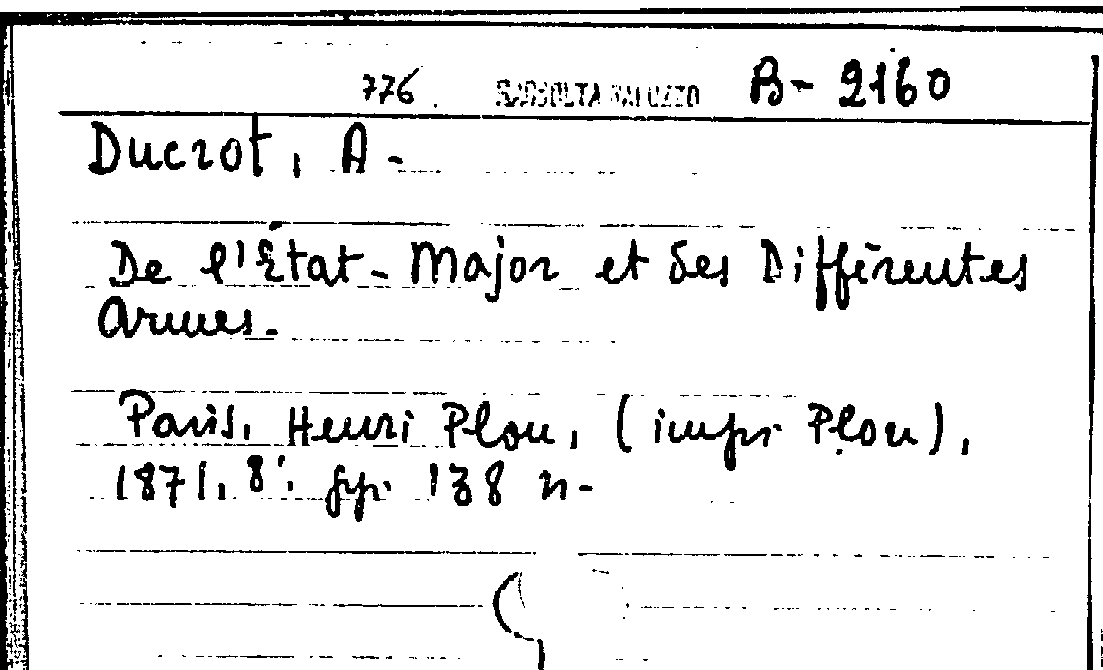 776. RACCOLTA SALUZZO B- 2160
Ducrot, A-
De l'État-Major et des Différentes
Armes.
Paris, Henri Plon, (impr. Plon),
1871, 8° pp. 138 n-